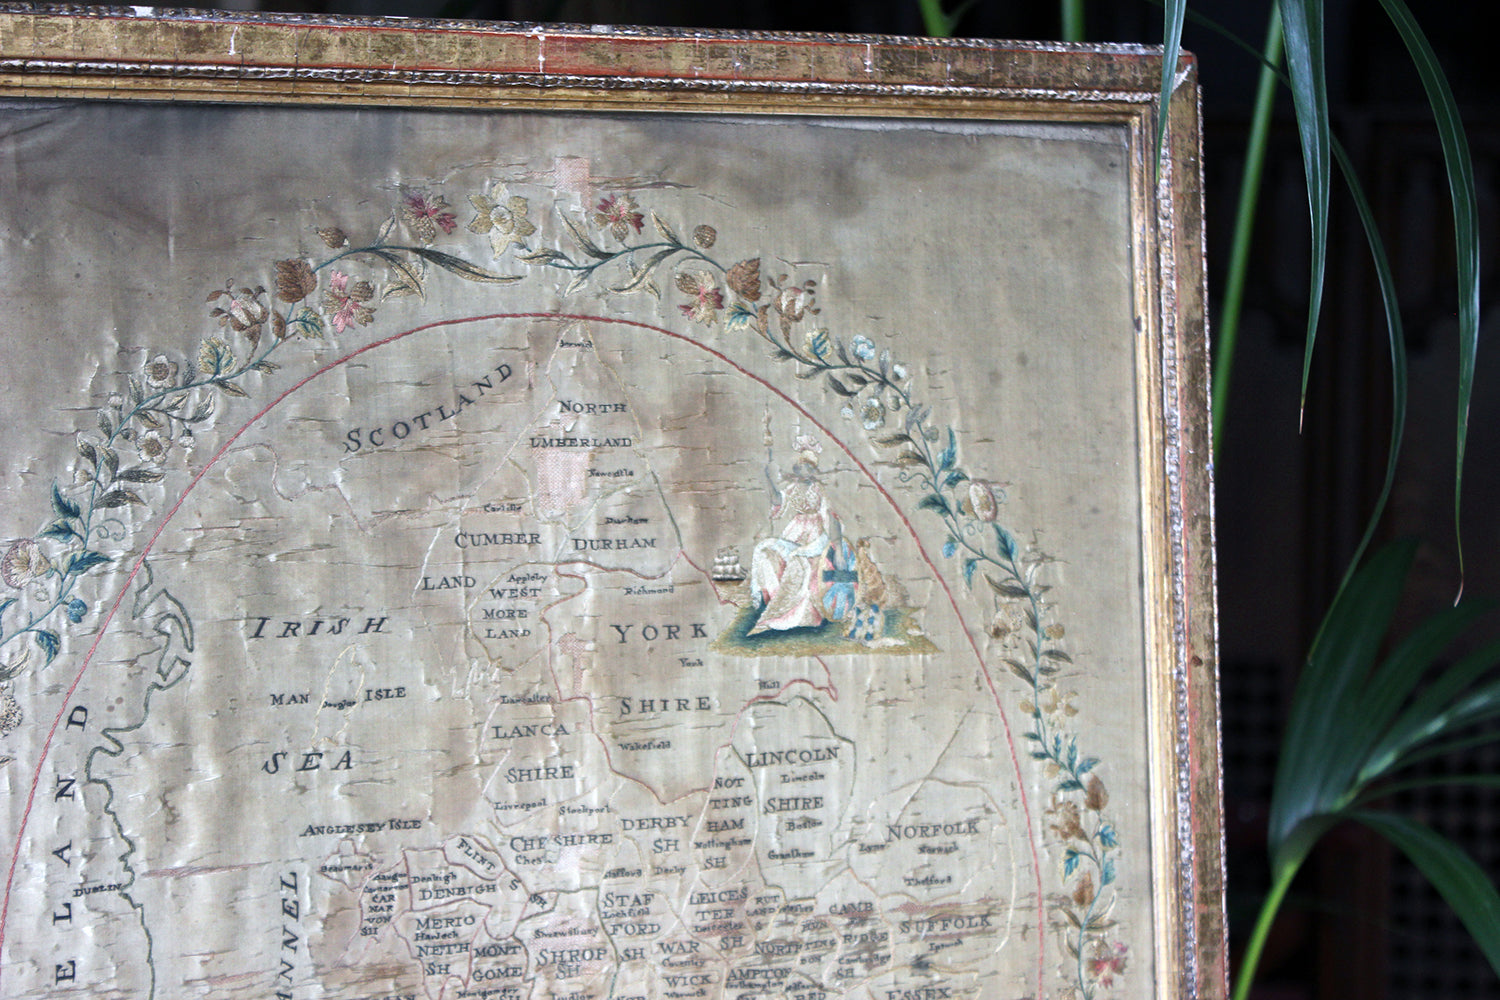 SCOTLAND
Berwick
NORTH
UMBERLAND
Newcastle
Carlisle
Durham
CUMBER
DURHAM
LAND
Appleby
WEST
Richmond
MORE
LAND
IRISH
YORK
York
MAN
Douglas
ISLE
Lancaster
Hull
SHIRE
LANCA
Wakefield
SEA
LINCOLN
SHIRE
Lincoln
NOT
TING
SHIRE
Liverpool
Stockport
ANGLESEY ISLE
DERBY
HAM
Boston
NORFOLK
CHESHIRE
SH
Nottingham
Lynn
Norwich
FLINT
SH
Grantham
Beaumaris
Denbigh
Stafford
Derby
Thetford
DUBLIN
CAR
NAR
VON
SH
DENBIGH
S
STAF
LEICES
RUT
LAND
CAMB
SUFFOLK
MERIO
Lichfield
TER
Harlech
Shrewsbury
FORD
Leicester
HUN
NETH
MONT
SHROP
SH
WAR
SH
NORTH
TING
RIDGE
Ipswich
SH
GOME
SH
Coventry
DON
Cambridge
WICK
AMPTON
SH
Montgomery
SH
Ludlow
Warwick
Northampton
BED
ESSEX
ELAND
ANNEL